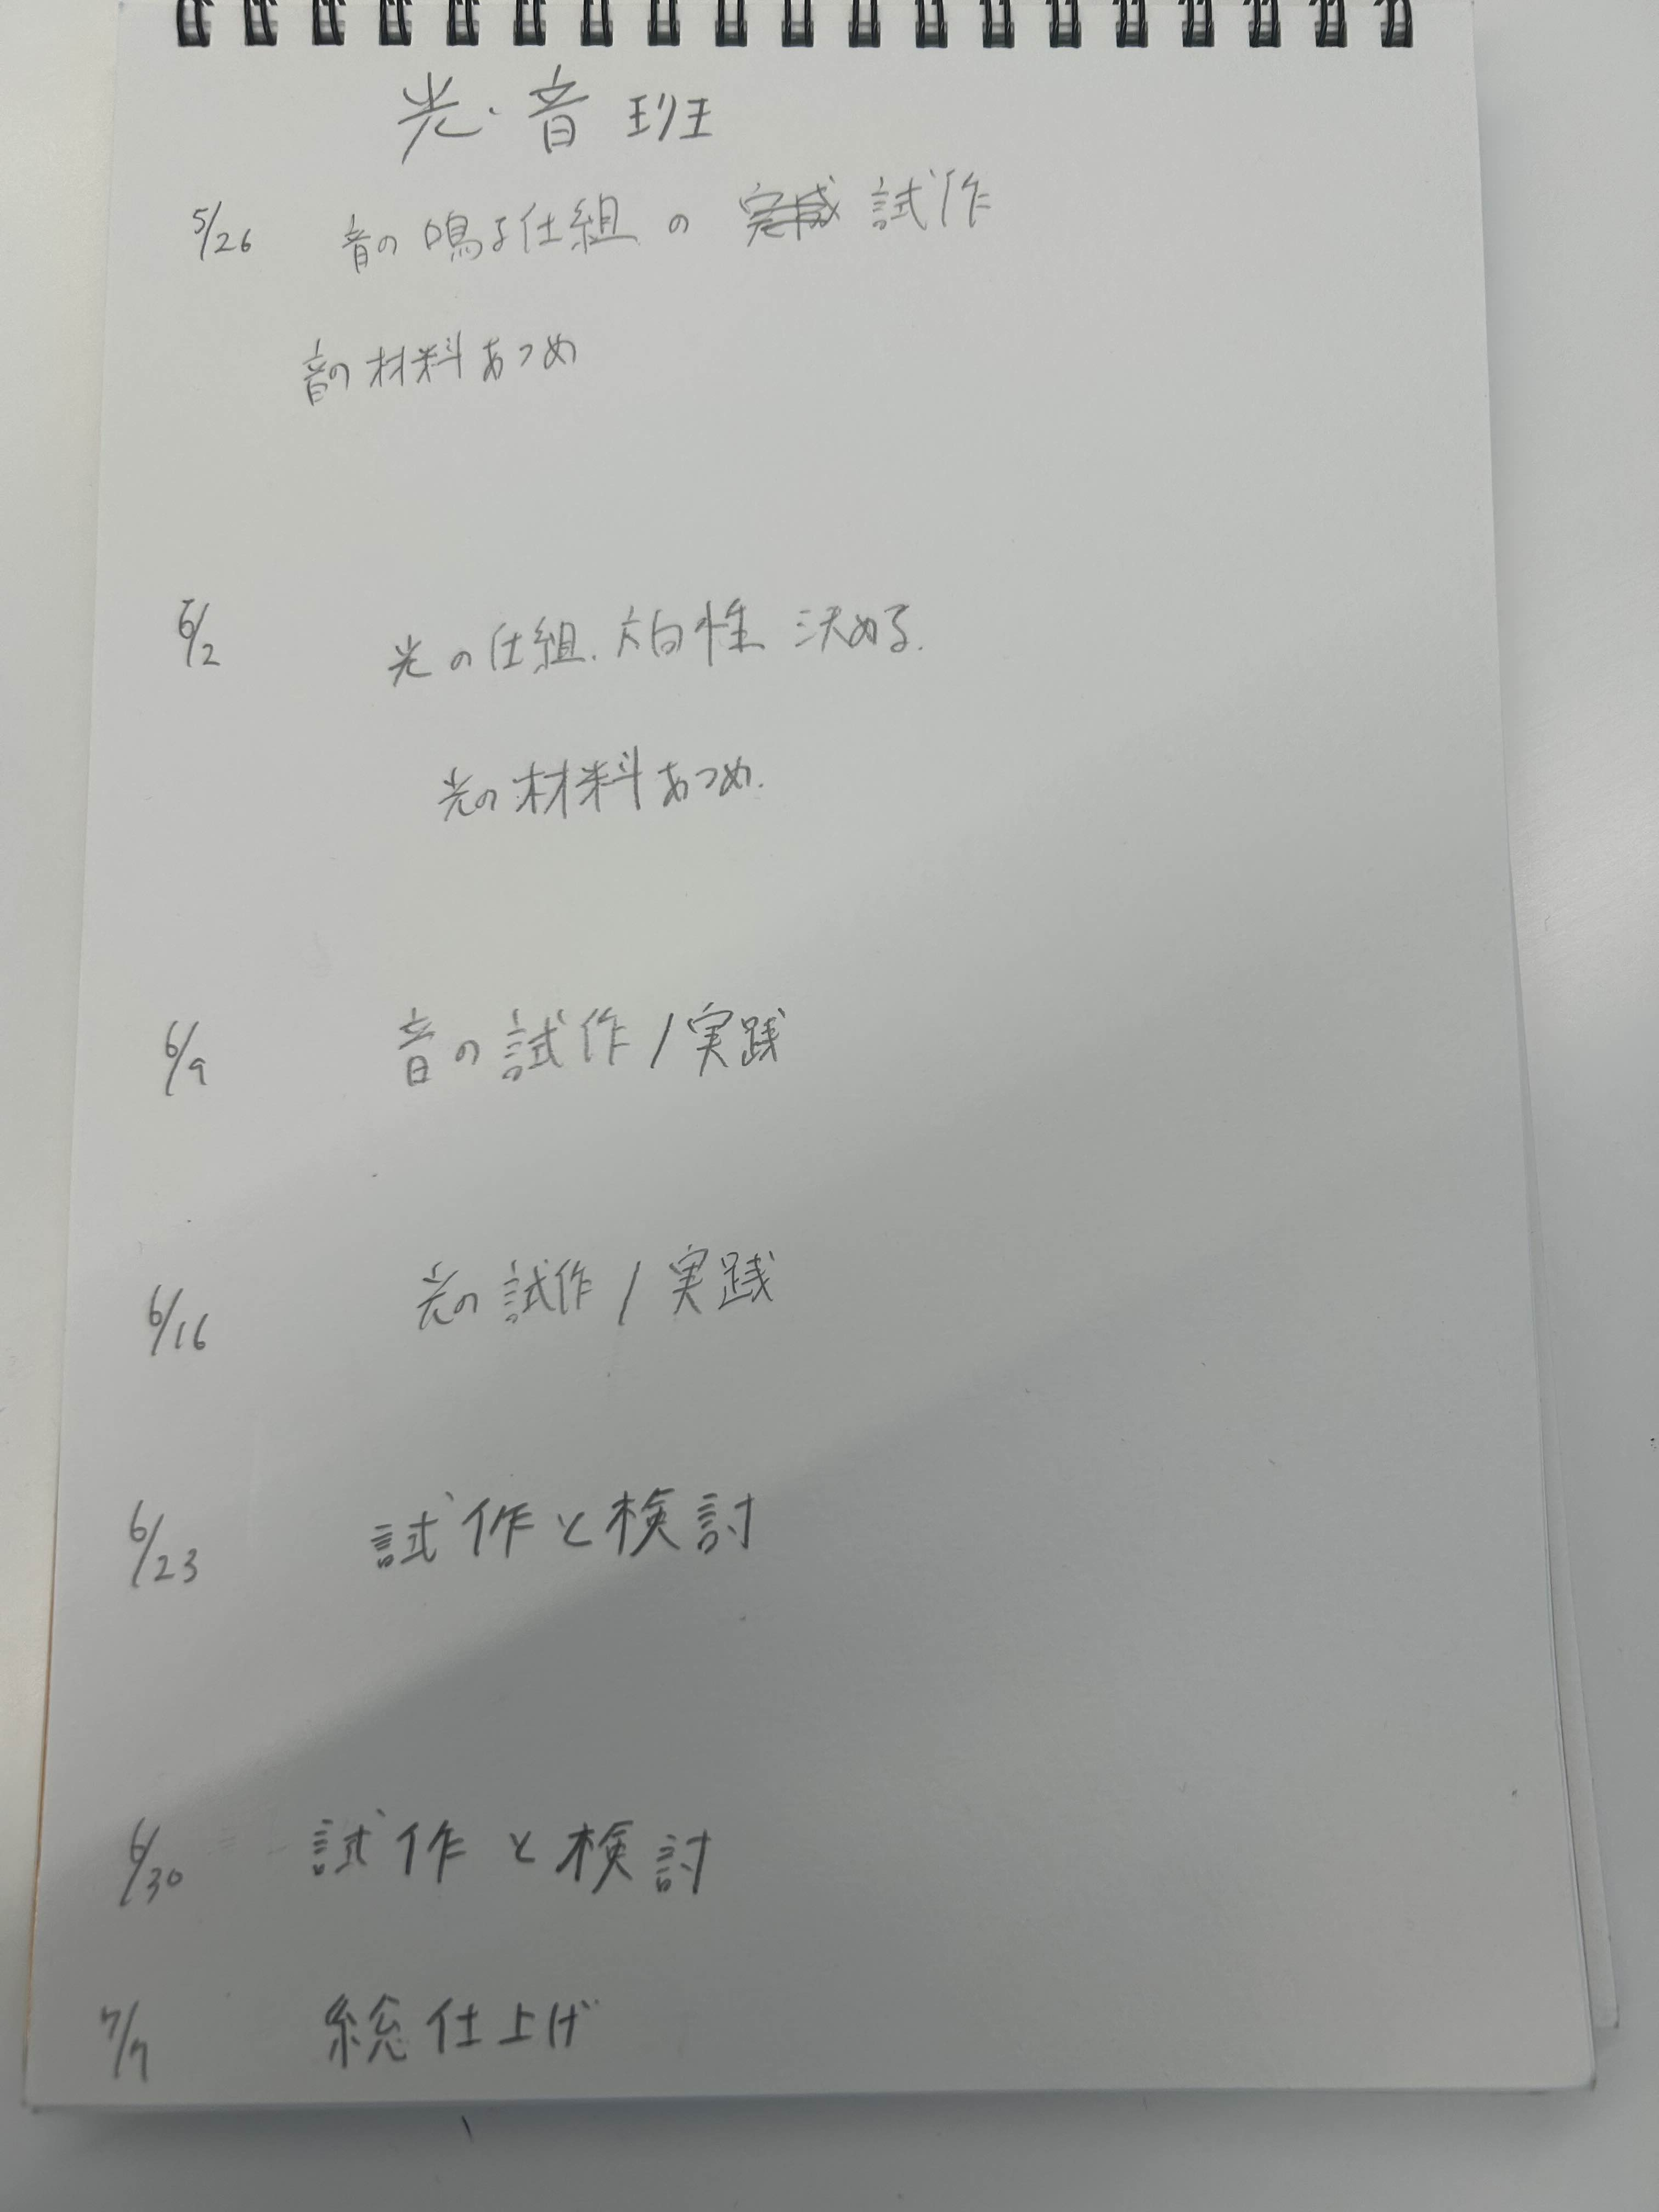 光・音班
5/26 音の鳴る仕組の 完成 試作
音の材料あつめ
6/2 光の仕組、方向性 決める.
光の材料あつめ.
6/9 音の試作/実践
6/16 光の試作/実践
6/23 試作と検討
6/30 試作と検討
7/7 総仕上げ